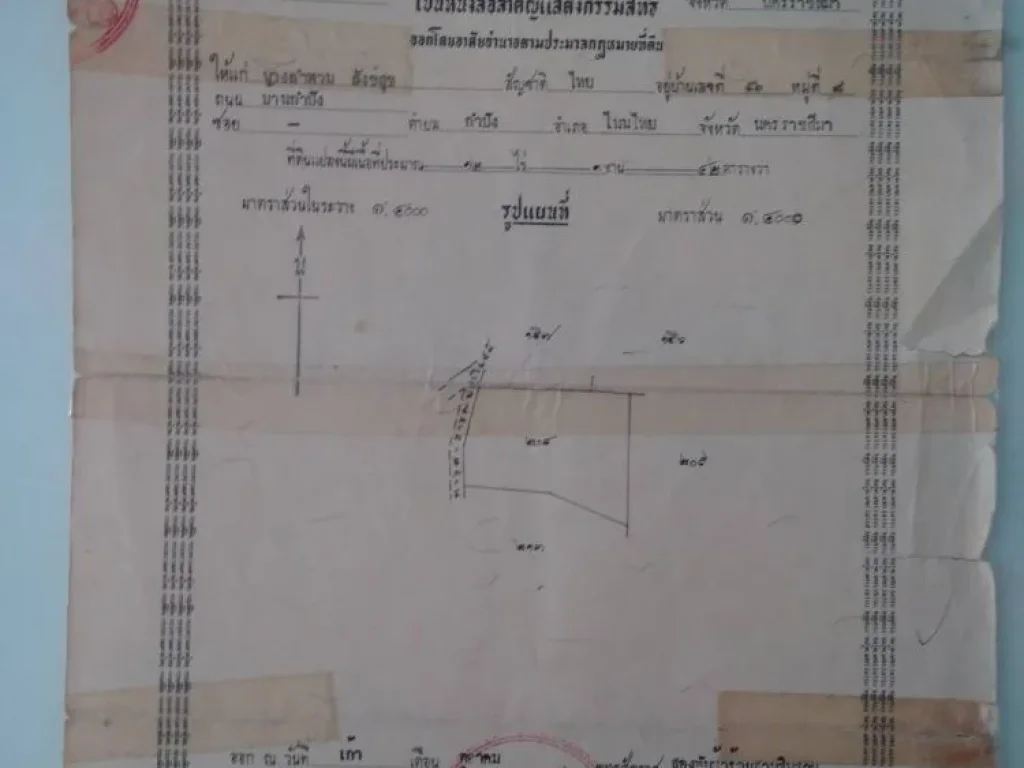 เป็นหนังสือสำคัญแสดงกรรมสิทธิ์ จังหวัด นครราชสีมา
ออกโดยอาศัยอำนาจตามประมวลกฎหมายที่ดิน
ให้แก่ นางลำดวน สังข์สุข สัญชาติ ไทย อยู่บ้านเลขที่ ๘๖ หมู่ที่ ๘
ถนน บ้านกำปัง
ซอย – ตำบล กำปัง อำเภอ โนนไทย จังหวัด นครราชสีมา
ที่ดินแปลงนี้มีเนื้อที่ประมาณ ๑๒ ไร่ ๑ งาน ๔๒ ตารางวา
มาตราส่วนในระวาง ๑:๔๐๐๐ รูปแผนที่ มาตราส่วน ๑:๔๐๐๐
น
๑๕๗ ๑๕๖
๒๐๘
๒๐๙
๒๑๓
ออก ณ วันที่ เก้า เดือน ตุลาคม